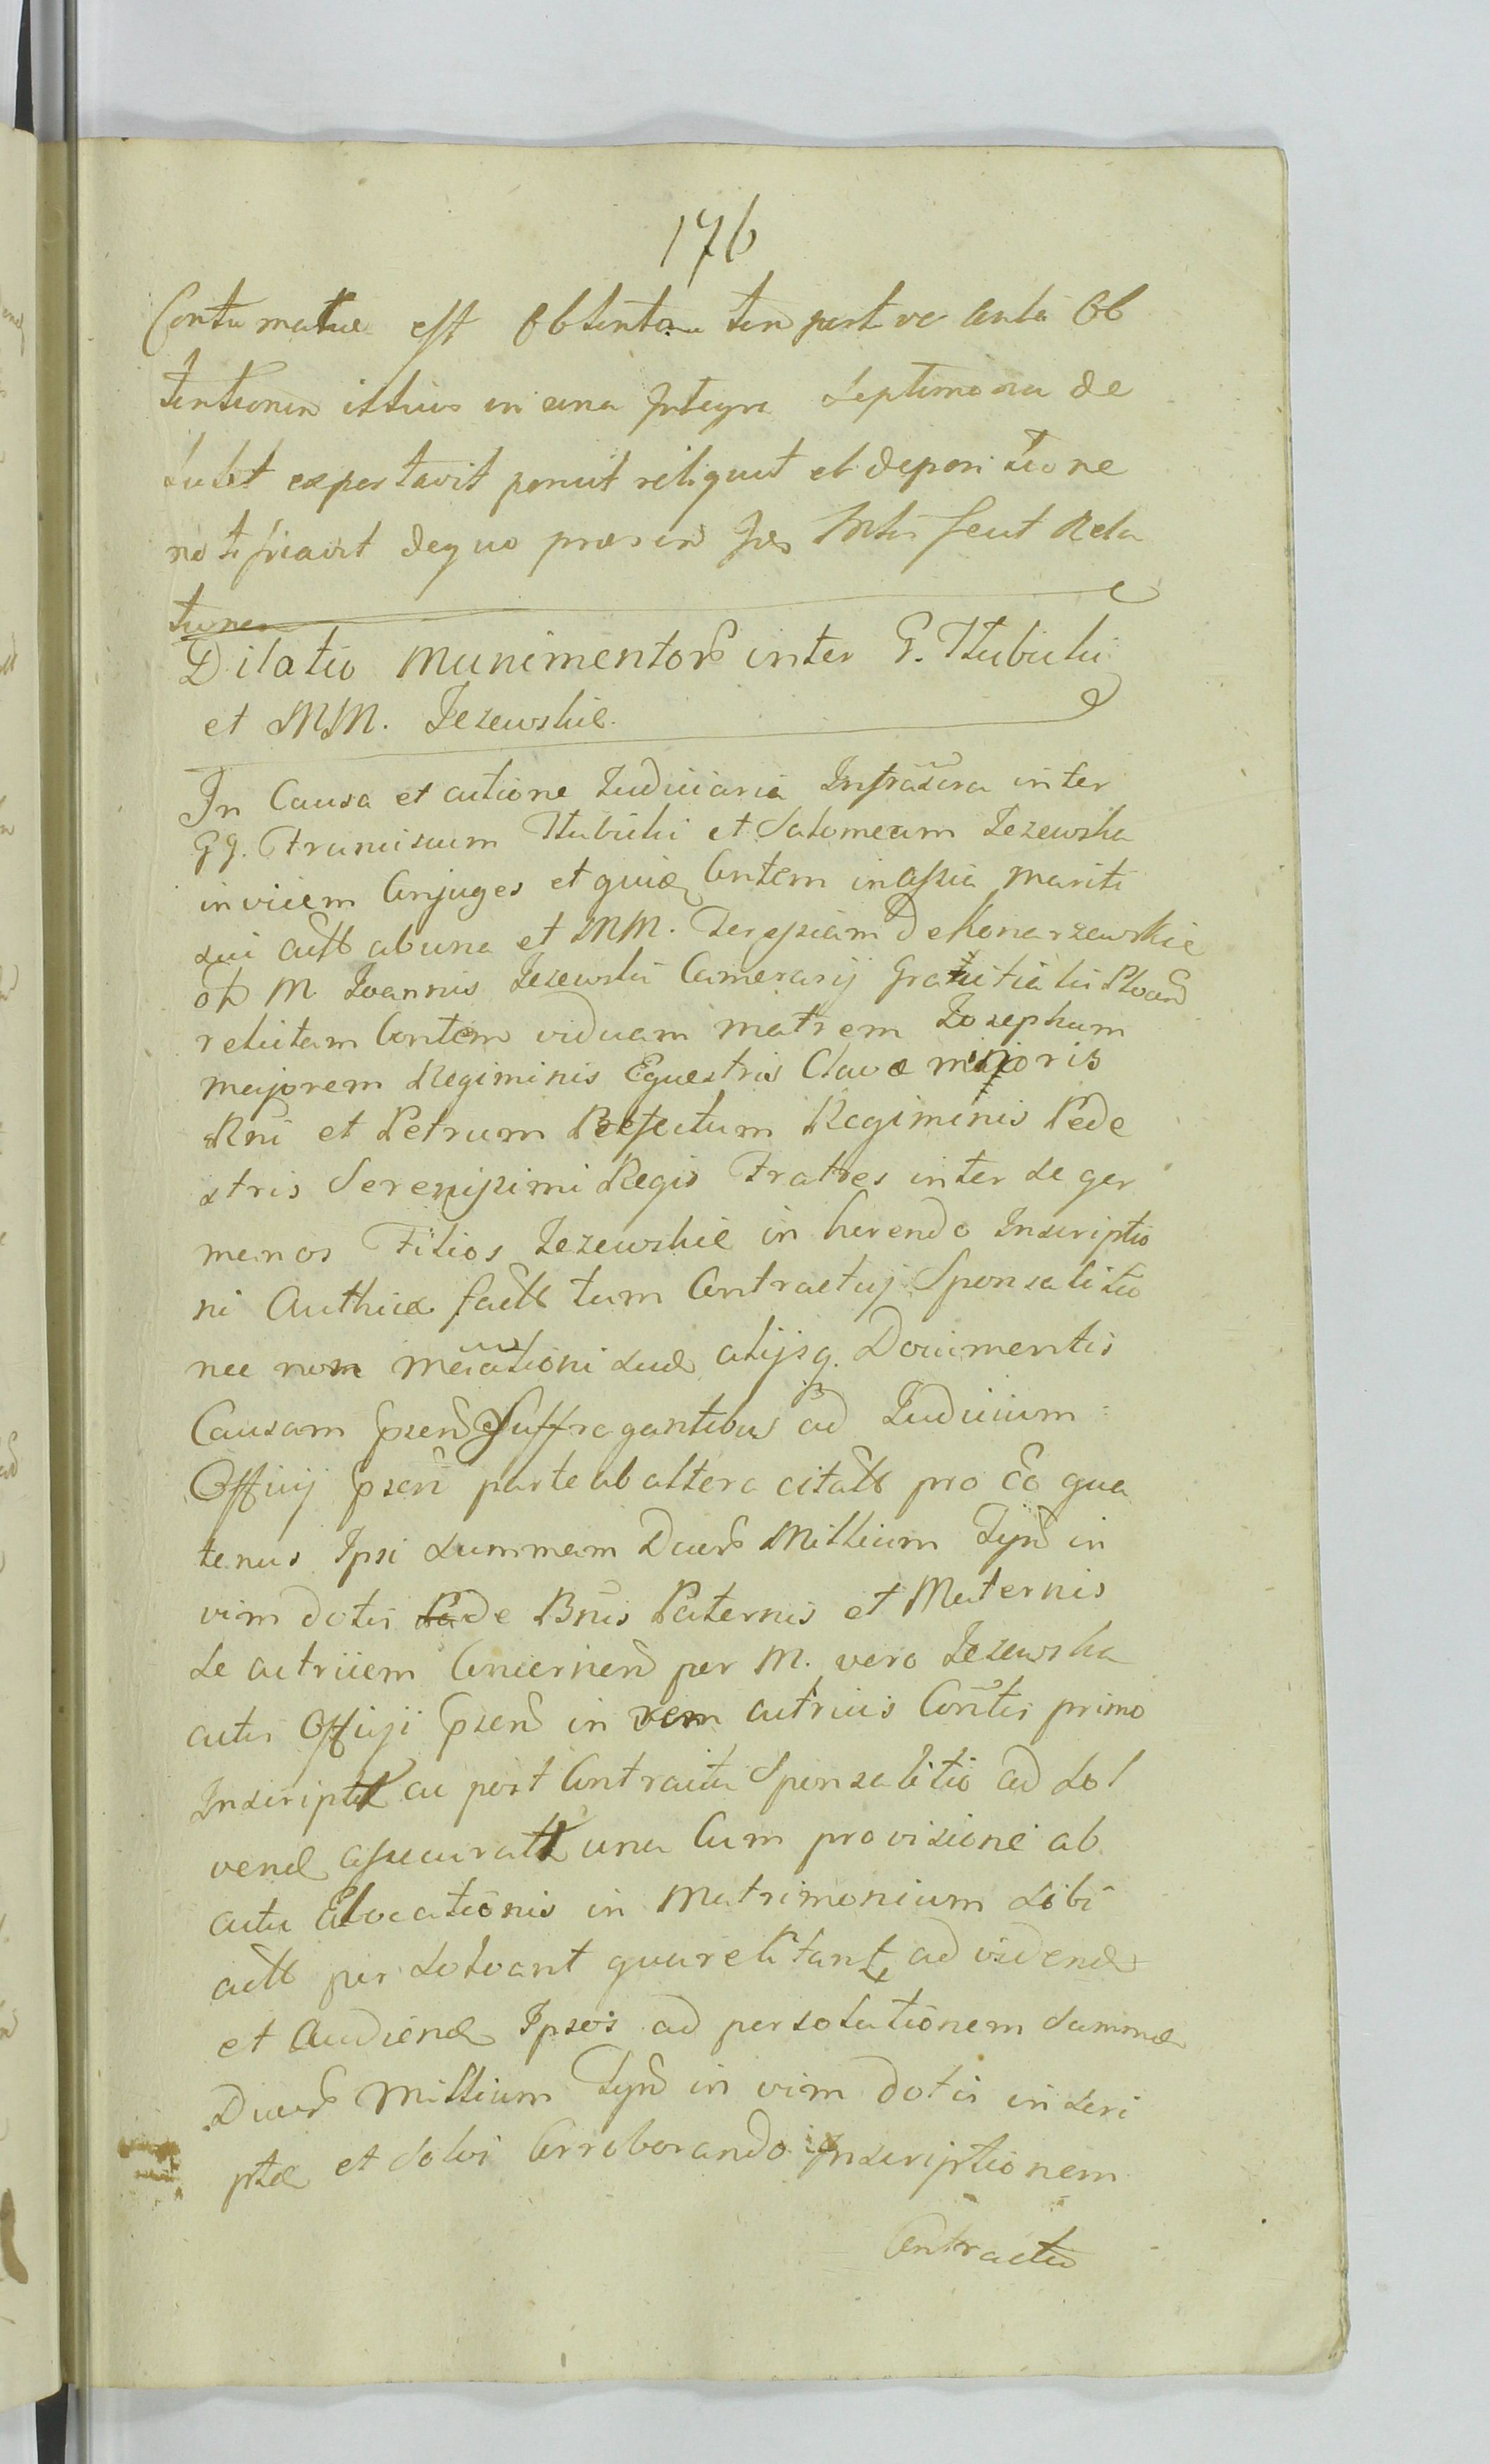 176
Contumatiae est obtenta tempestive ante Ob
tentionem istius in una Integra Septimana de
dudt exportavit ponuit reliquit et depositione
notificavit dequo praesen Jus Mtri fecit Rela
tione
Dilatio Munimentor inter G. Ttubicki
et MM. Jezewskie
In Causa et actione Judiciaria Infrascra inter
GG. Franciscum Ttubicki et Salomeam Jezewska
invicem Conjuges et quidem Contem in assia mariti
sui actt abuna et MM. Teressiam de Konarzewskie
ol M. Joannis Jezewski Camerarij Granitialis Ploced
relictam Contem viduam matrem Josephum
majorem Regiminis Equestris Clavae minoris
Rni et Petrum Praefectum Regiminis Pede
stris Serenissimi Regis Fratres inter se ger
manos Filios Jezewskie in herendo Inscriptio
ni Authicae factt tum Contractuj Sponsalitio
nec non meiationi suae alijsq. Documentis
Causam psen Suffragantibus ad Judicium
Officij psen parte ab altera citatt pro Eo qua
tenus Ipsi summam Duar Millium Tyn in
vim dotis Pa de Bnis Paternis et Maternis
se actricem Concernen per M. vero Jezewska
actis Officji psen in rem actricis Contis primo
Inscriptt ac post Contractu Sponsalitio ad sol
vend assecuratt una Cum provisione ab
actu Elocationis in Matrimonium sibi
actt per solvant quaerelitant, ad vidend
et Audiend Ipsos ad persolutionem Summae
Duar Millium Tyn in vim dotis inscri
ptae et solvi Corroborando Inscriptionem
Contractu